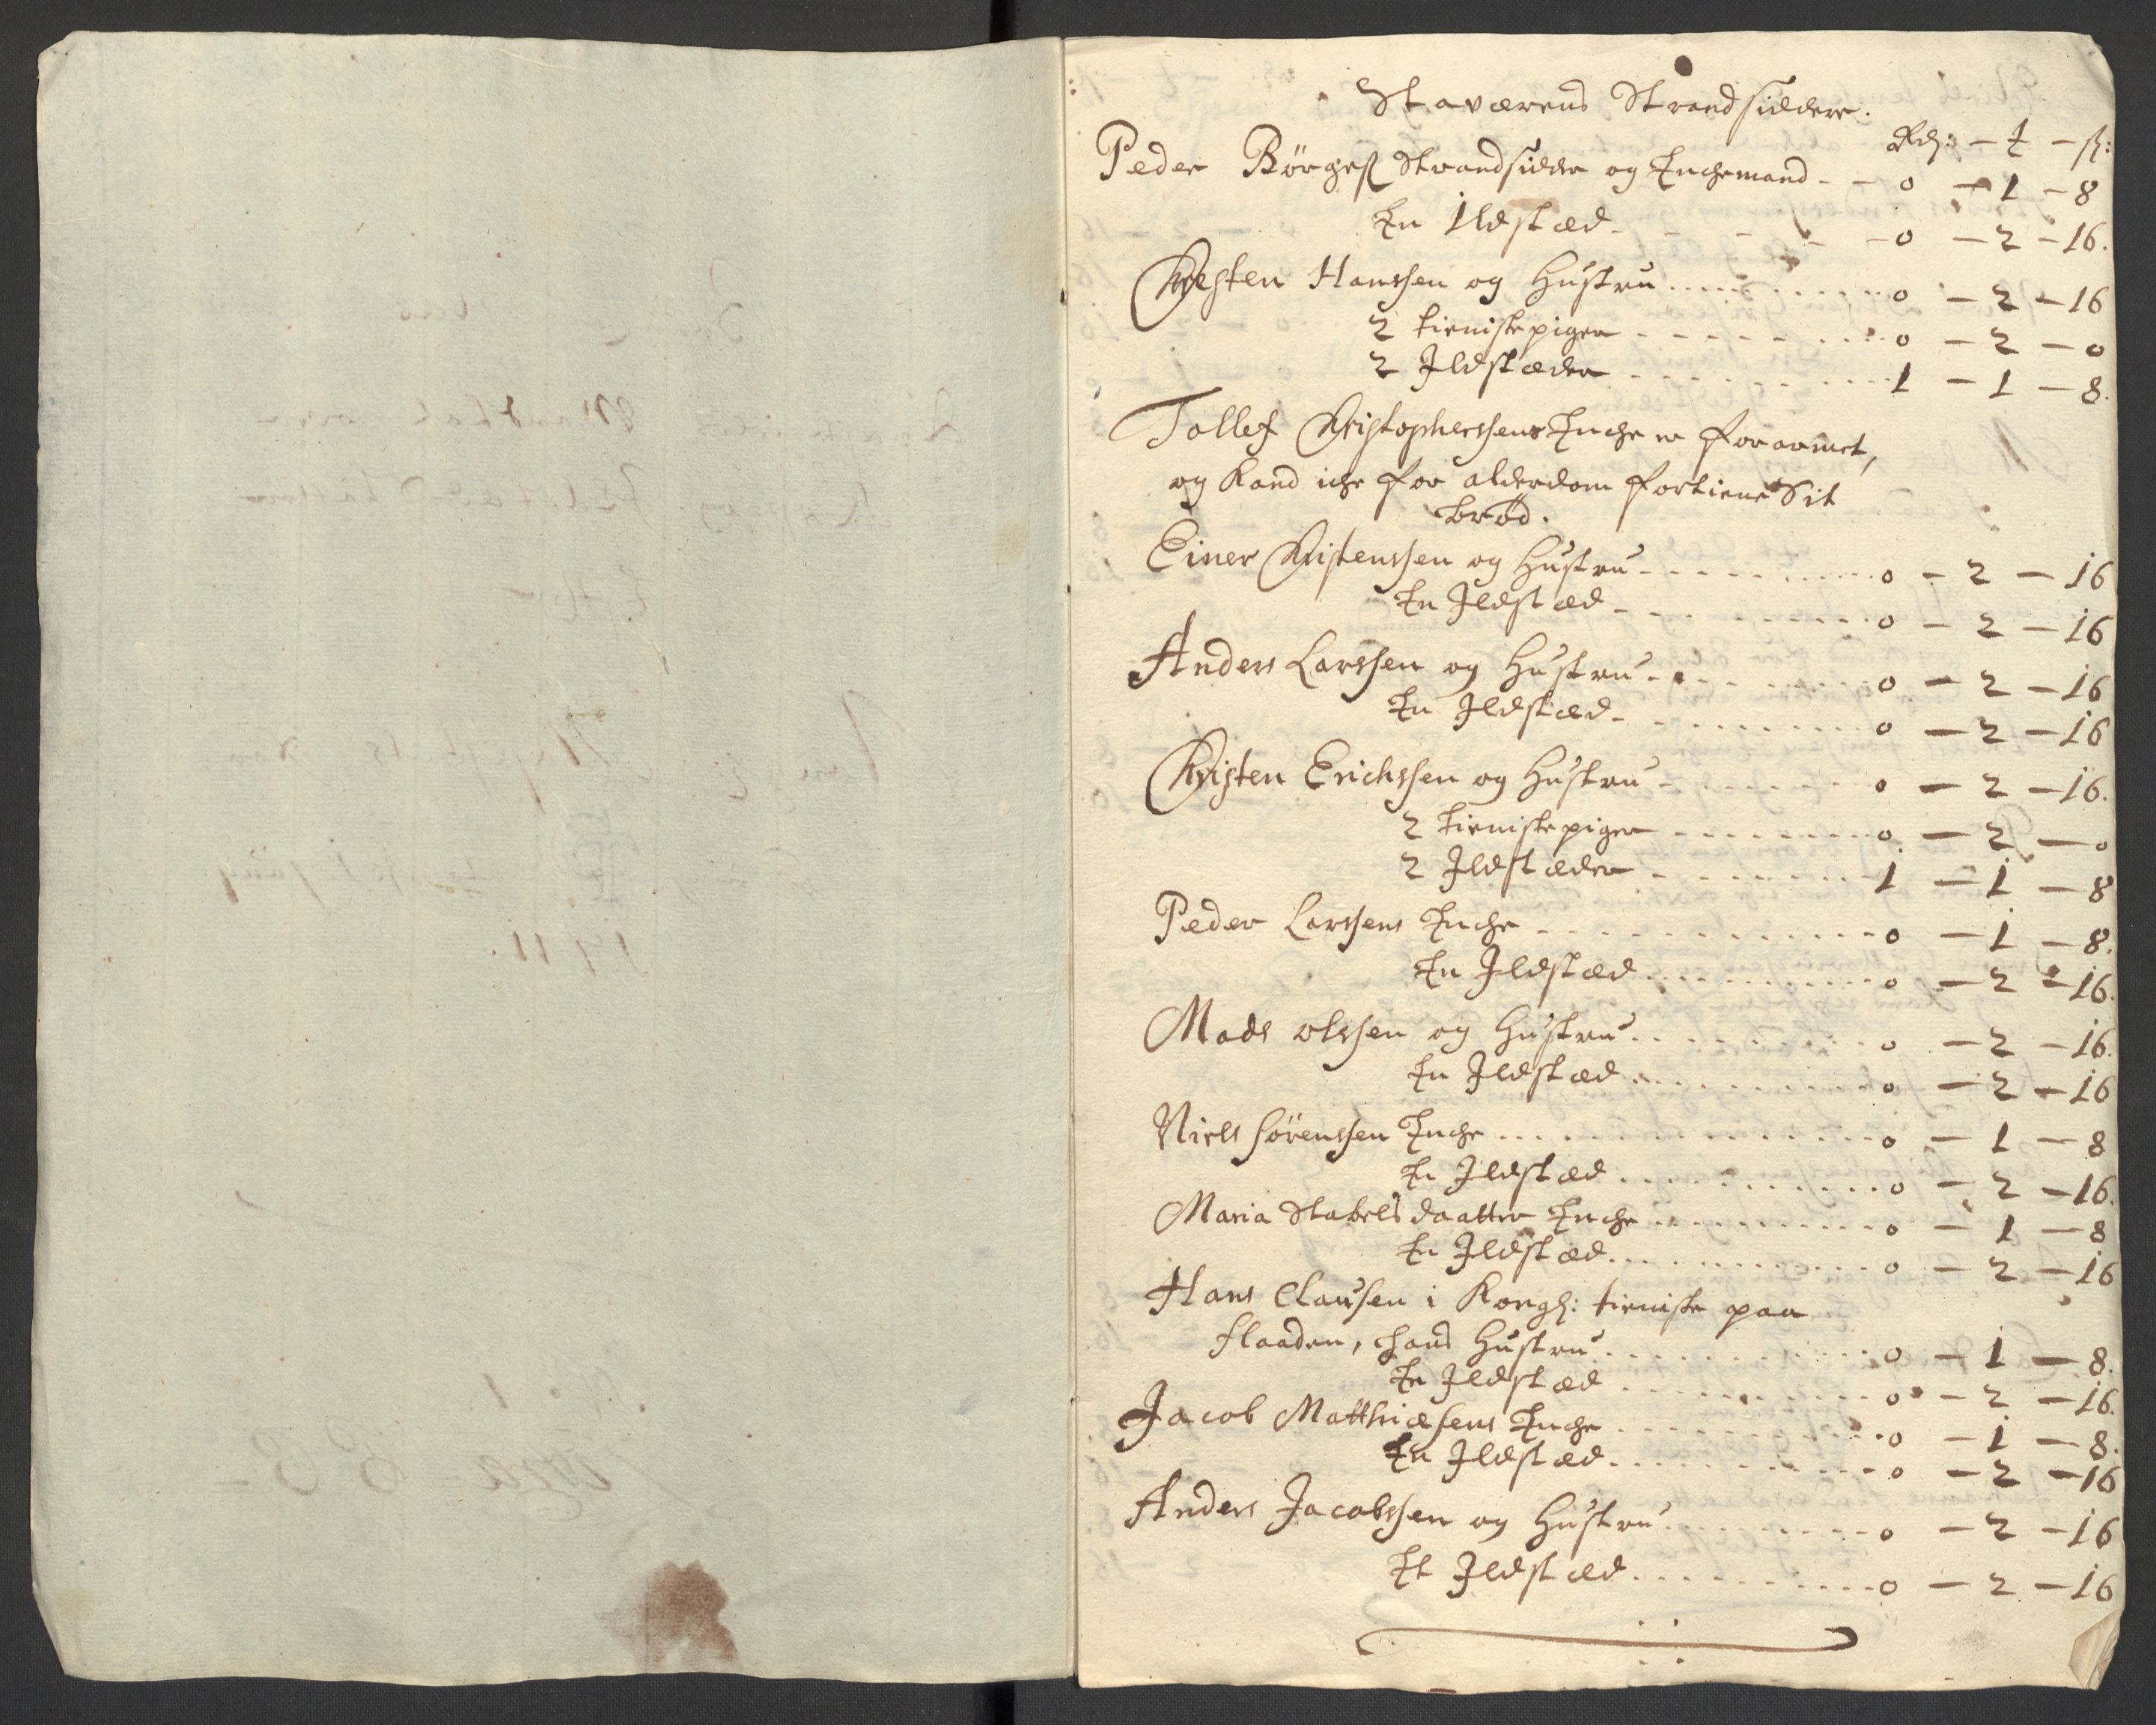 Staværens Strandsiddere.
Rdr: - ƶ - ß:
Peder Börgeß Strandsidder og Enchemand - - 0 - 1 - 8
En Ildstæd - - - - - 0 - 2 - 16.
Christen Hanssen og Hustru ........ 0 - 2 - 16
2 tienistepiger - - - - - 0 - 2 - 0
2 Ildstæder - - - - - 1 - 1 - 8.
Tollef Christopherssens Enche er forarmet,
og Kand iche for alderdom fortiene Sit
brød.
Einer Christenssen og Hustru - - - - - 0 - 2 - 16
En Ildstæd - - - - - 0 - 2 - 16
Anders Larssen og Hustru - - - - - 0 - 2 - 16
En Ildstæd - - - - - 0 - 2 - 16
Christen Erichssen og Hustru - - - - - 0 - 2 - 16.
2 tienistepiger - - - - - 0 - 2 - 0
2 Ildstæder - - - - - 1 - 1 - 8
Peder Larssens Enche - - - - - 0 - 1 - 8.
En Ildstæd - - - - - 0 - 2 - 16.
Mads olssen og Hustru - - - - - 0 - 2 - 16.
En Ildstæd - - - - - 0 - 2 - 16
Niels Sörenssen Enche ........ 0 - 1 - 8
En Ildstæd ........ 0 - 2 - 16.
Maria Stabels daatter Enche ........ 0 - 1 - 8
En Ildstæd ........ 0 - 2 - 16
Hans Clausen i Kongl: tieniste paa
flaaden, hans Hustru ........ 0 - 1 - 8.
En Ildstæd ........ 0 - 2 - 16.
Jacob Matthiæsens Enche ........ 0 - 1 - 8.
En Ildstæd ........ 0 - 2 - 16
Anders Jacobssen og Hustru ........ 0 - 2 - 16
Et Ildstæd ........ 0 - 2 - 16